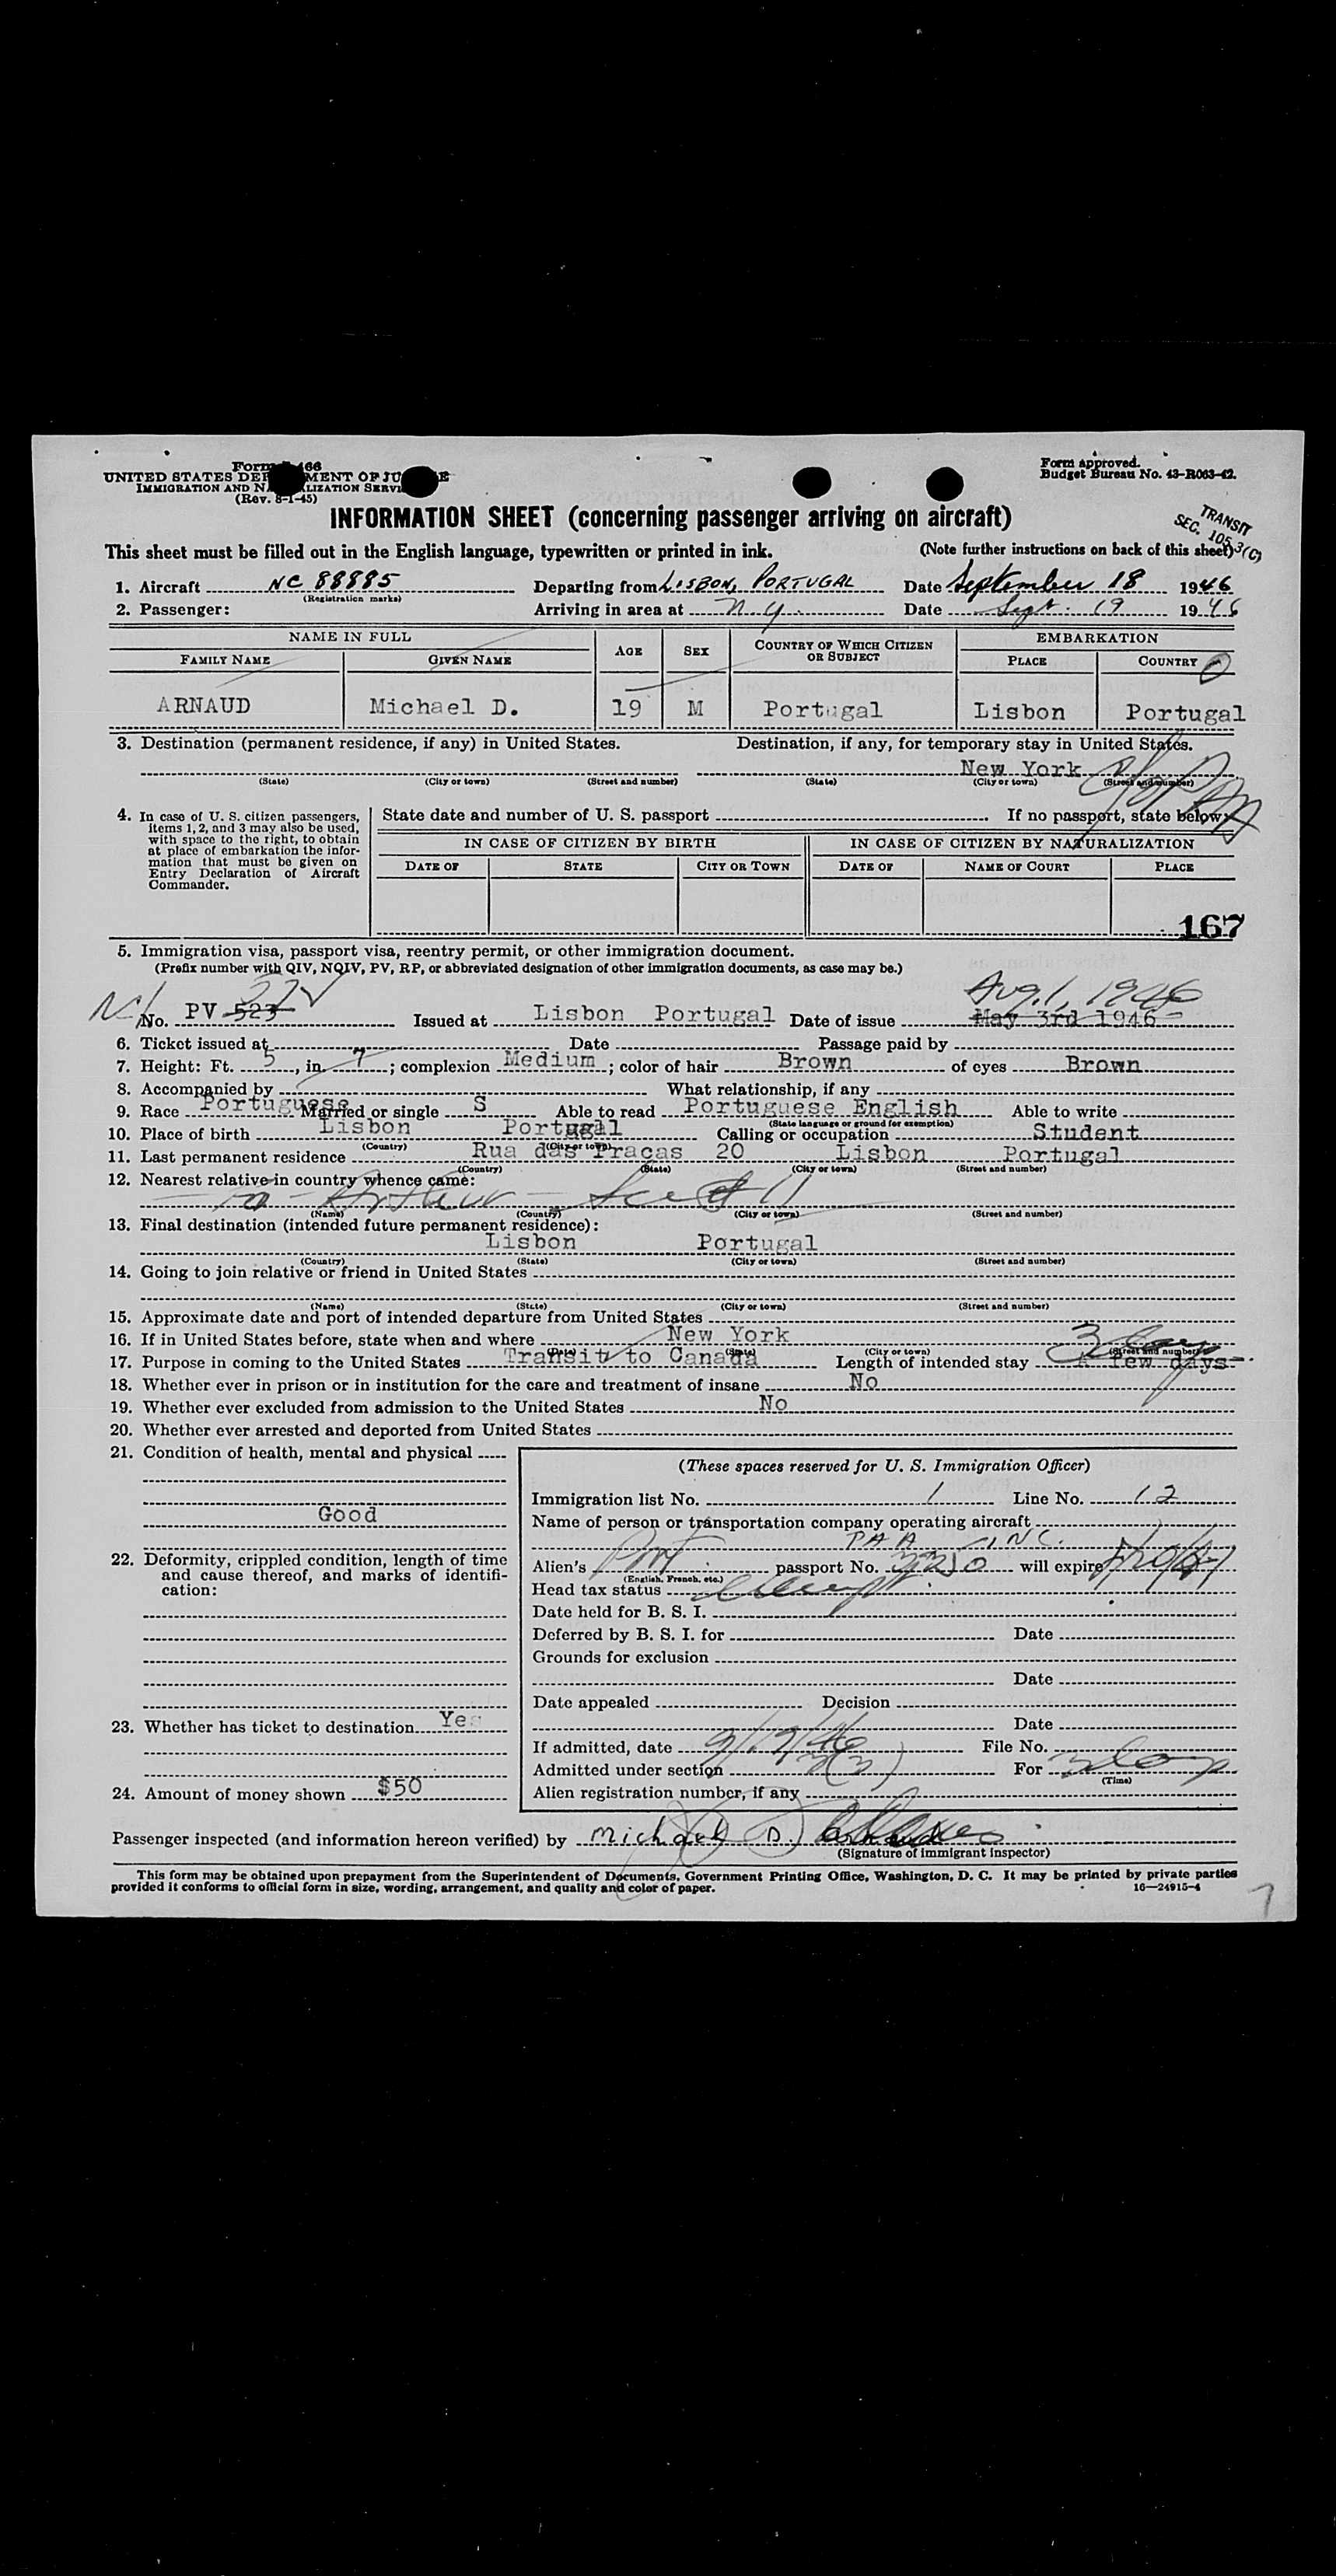 Form I-466
UNITED STATES DEPARTMENT OF JUSTICE
IMMIGRATION AND NATURALIZATION SERVICE
(Rev. 8-1-45)
Form approved.
Budget Bureau No. 43-R063-42.
INFORMATION SHEET (concerning passenger arriving on aircraft)
TRANSIT
SEC. 105.3(C)
This sheet must be filled out in the English language, typewritten or printed in ink. (Note further instructions on back of this sheet)
1. Aircraft NC 88885 Departing from LISBON, PORTUGAL Date September 18 1946
(Registration marks)
2. Passenger: Arriving in area at N.Y. Date Sept. 19 1946
NAME IN FULL AGE SEX COUNTRY OF WHICH CITIZEN OR SUBJECT EMBARKATION
FAMILY NAME GIVEN NAME PLACE COUNTRY
ARNAUD Michael D. 19 M Portugal Lisbon Portugal
3. Destination (permanent residence, if any) in United States. Destination, if any, for temporary stay in United States.
New York
(State) (City or town) (Street and number) (State) (City or town) (Street and number)
4. In case of U. S. citizen passengers, items 1, 2, and 3 may also be used, with space to the right, to obtain at place of embarkation the information that must be given on Entry Declaration of Aircraft Commander.
State date and number of U. S. passport If no passport, state below:
IN CASE OF CITIZEN BY BIRTH IN CASE OF CITIZEN BY NATURALIZATION
DATE OF STATE CITY OR TOWN DATE OF NAME OF COURT PLACE
167
5. Immigration visa, passport visa, reentry permit, or other immigration document.
(Prefix number with QIV, NQIV, PV, RP, or abbreviated designation of other immigration documents, as case may be.)
Aug. 1, 1946
No. PV 523 Issued at Lisbon Portugal Date of issue May 3rd 1946
6. Ticket issued at Date Passage paid by
7. Height: Ft. 5, in. 7; complexion Medium; color of hair Brown of eyes Brown
8. Accompanied by What relationship, if any
9. Race Portuguese Married or single S Able to read Portuguese English Able to write
(State language or ground for exemption)
10. Place of birth Lisbon Portugal Calling or occupation Student
(Country) (City or town)
11. Last permanent residence Rua das Pracas 20 Lisbon Portugal
(Country) (State) (City or town) (Street and number)
12. Nearest relative in country whence came:
(Name) (Country) (City or town) (Street and number)
13. Final destination (intended future permanent residence):
Lisbon Portugal
(Country) (State) (City or town) (Street and number)
14. Going to join relative or friend in United States
(Name) (State) (City or town) (Street and number)
15. Approximate date and port of intended departure from United States
16. If in United States before, state when and where New York
(Date) (State) (City or town) (Street and number)
17. Purpose in coming to the United States Transit to Canada Length of intended stay A few days
18. Whether ever in prison or in institution for the care and treatment of insane No
19. Whether ever excluded from admission to the United States No
20. Whether ever arrested and deported from United States
21. Condition of health, mental and physical
Good
22. Deformity, crippled condition, length of time and cause thereof, and marks of identification:
23. Whether has ticket to destination Yes
24. Amount of money shown $50
(These spaces reserved for U. S. Immigration Officer)
Immigration list No. 1 Line No. 12
Name of person or transportation company operating aircraft
PAA INC.
Alien's Port passport No. will expire
(English, French, etc.)
Head tax status Exempt
Date held for B. S. I.
Deferred by B. S. I. for Date
Grounds for exclusion
Date
Date appealed Decision
Date
If admitted, date 9/19/46 File No.
Admitted under section 3(3) For 3 days
(Time)
Alien registration number, if any
Passenger inspected (and information hereon verified) by Michael D.
(Signature of immigrant inspector)
This form may be obtained upon prepayment from the Superintendent of Documents, Government Printing Office, Washington, D. C. It may be printed by private parties
provided it conforms to official form in size, wording, arrangement, and quality and color of paper. 16—24915-4